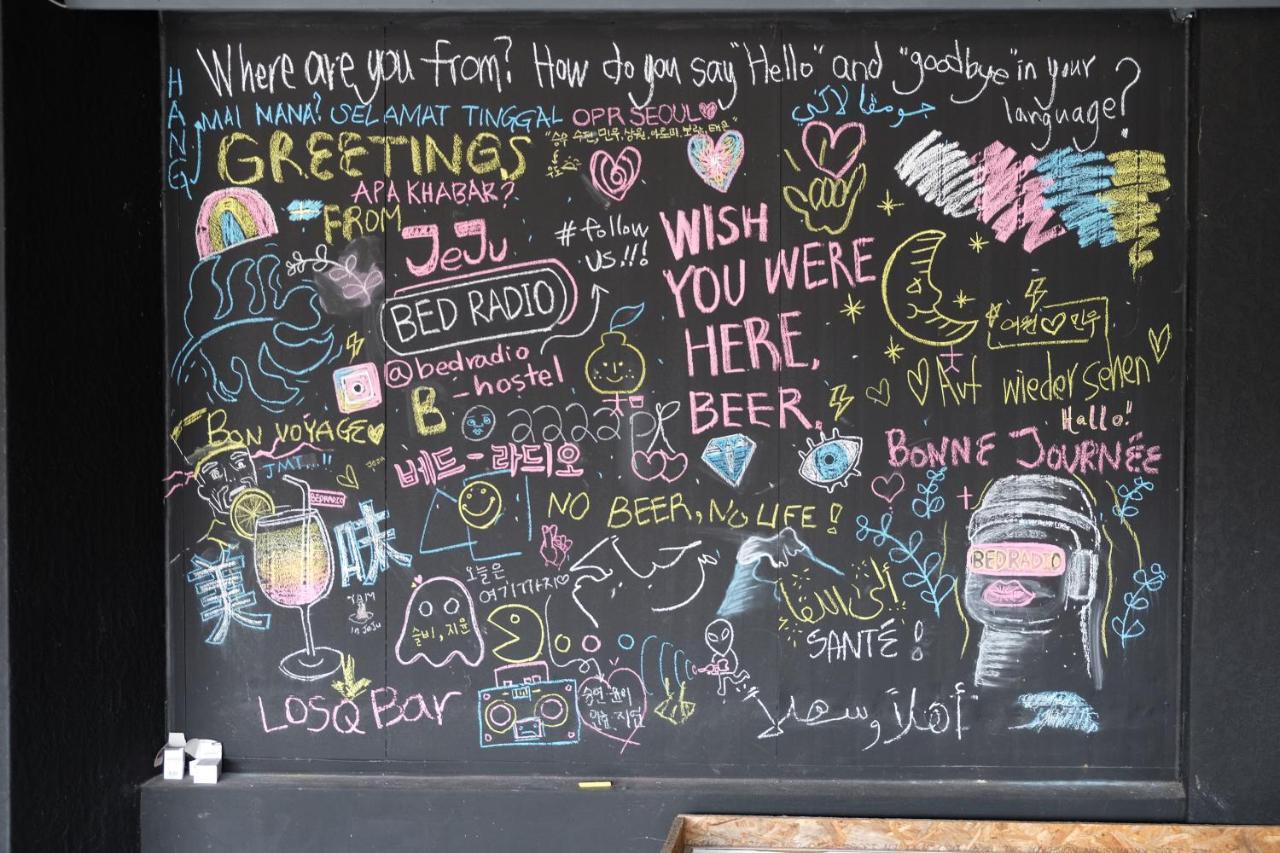 Where are you from? How do you say "Hello" and "goodbye" in your
language?
HANG
MAI MANA? SELAMAT TINGGAL OPR SEOUL
GREETINGS
APA KHABAR?
FROM
JeJu
#follow
us!!!
BED RADIO
@bedradio
-hostel
B
aaaaa
WISH
YOU WERE
HERE,
BEER,
여원♡민우
Auf wiedersehen
Hallo!
BONNE JOURNÉE
BON VOYAGE
JMT...!!
베드-라디오
BEDRADIO
NO BEER, NO LIFE!
美
味
오늘은
여기까지♡
YAM
in JeJu
슬비, 지윤
مرحبا
إلى اللقاء
SANTÉ!
BEDRADIO
LOSQ Bar
أهلاً وسهلاً